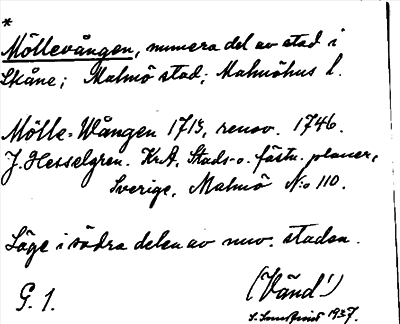 *
Möllevången, numera del av stad i
Skåne; Malmö stad; Malmöhus l.
Mölle-Wången 1715, renov. 1746.
J. Hesselgren. KrA, Stads-o. fästn. planer,
Sverige, Malmö N:o 110.
Läge i södra delen av nuv. staden.
G. 1. (Vänd!)
1937.